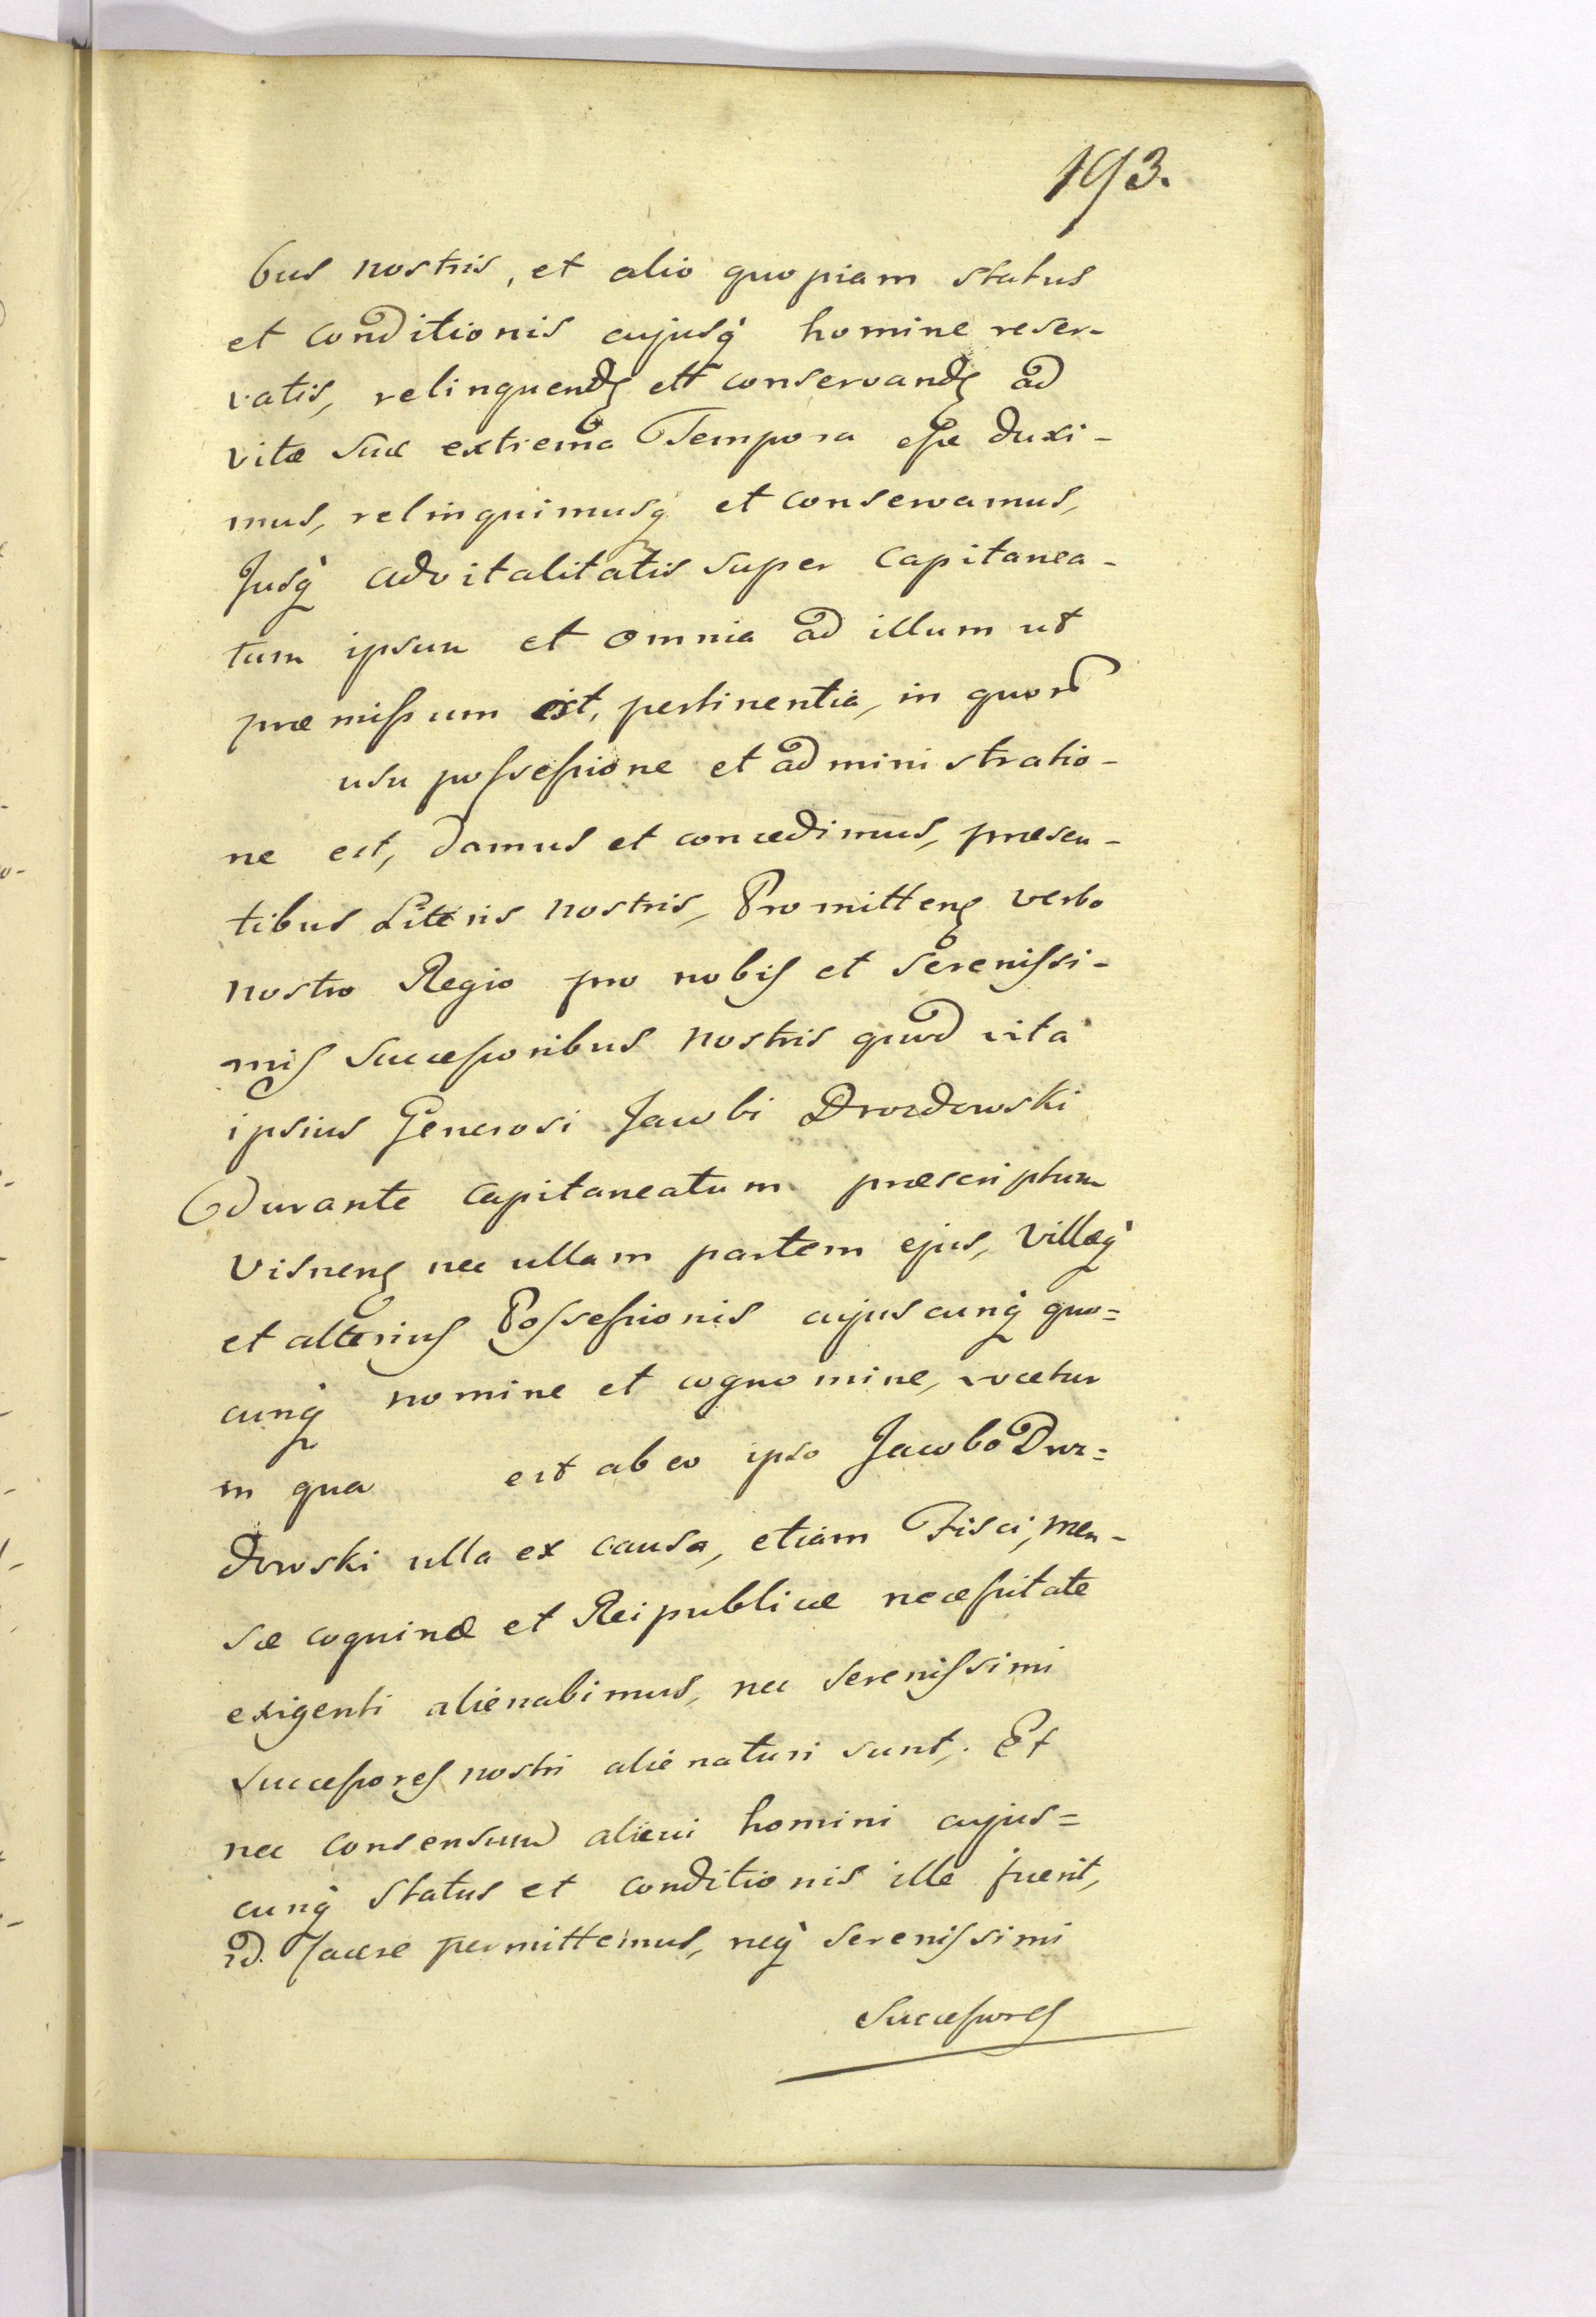 193.
bus nostris, et alio quopiam status
et conditionis cujusq̀ homine reser-
vatis, relinquendꝫ ett conservandꝫ ad
vitæ suæ extrema Tempora eſse duxi-
mus, relinquimusq̀ et conservamus,
Jusq̀ advitalitatis super capitanea-
tum ipsum et omnia ad illum ut
præmiſsum est, pertinentia, in quorū
usu poſseſsione et administratio-
ne est, damus et concedimus, præsen-
tibus Literis nostris, Promittenꝫ verbo
nostro Regio pro nobis et Sereniſsi-
mis Succeſsoribus nostris quod vita
ipsius Generosi Jacobi Drozdowski
durante capitaneatum præscriptum
Visnenꝫ nec ullam partem ejus, Villæq̀
et alterius Poſseſsionis cujuscunq̀ quo=
cunq̀ nomine et cognomine, vocetur
in qua est ab eo ipso Jacobo Droz=
dowski ulla ex causa, etiam Fisci, men-
sæ coquinæ et Reipublicæ neceſsitate
exigenti alienabimus, nec Sereniſsimi
Succeſsores nostri alienaturi sunt. Et
nec consensum alicui homini cujus=
cunq̀ Status et conditionis ille fuerit,
id. facere permittemus, neq̀ Sereniſsimi
Succeſsores